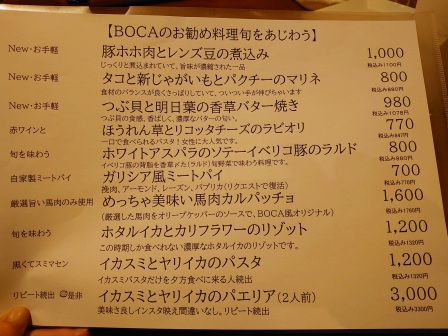 【BOCAのお勧め料理旬をあじわう】
New・お手軽 豚ホホ肉とレンズ豆の煮込み 1,000
じっくりと煮込まれていて、旨味が濃縮された一品 税込み1100円
New・お手軽 タコと新じゃがいもとパクチーのマリネ 800
食材のバランスが良くさっぱりしていて、ついつい手が伸びちゃいます 税込み880円
New・お手軽 つぶ貝と明日葉の香草バター焼き 980
つぶ貝の食感、香ばしく、濃厚なバターの匂い。 税込み1078円
赤ワインと ほうれん草とリコッタチーズのラビオリ 770
一口で食べられるパスタ！女性に大人気です。 税込み847円
旬を味わう ホワイトアスパラのソテーイベリコ豚のラルド 800
イベリコ豚の背脂を香草〆た(ラルド)旬野菜で味わう料理です。 税込み880円
自家製ミートパイ ガリシア風ミートパイ 700
挽肉、アーモンド、レーズン、パプリカ(リクエストで復活) 税込み770円
厳選旨い馬肉のみ使用 めっちゃ美味い馬肉カルパッチョ 1,600
(厳選した馬肉をオリーブケッパーのソースで、BOCA風オリジナル) 税込み1760円
旬を味わう ホタルイカとカリフラワーのリゾット 1,200
この時期しか食べれない濃厚なホタルイカのリゾットです。 税込み1320円
黒くてスミマセン イカスミとヤリイカのパスタ 1,200
イカスミパスタだけを夕方食べに来る人続出 税込み1320円
リピート続出 是非 イカスミとヤリイカのパエリア(2人前) 3,000
美味さ良しインスタ映え間違いなし。リピート続出 税込み3300円